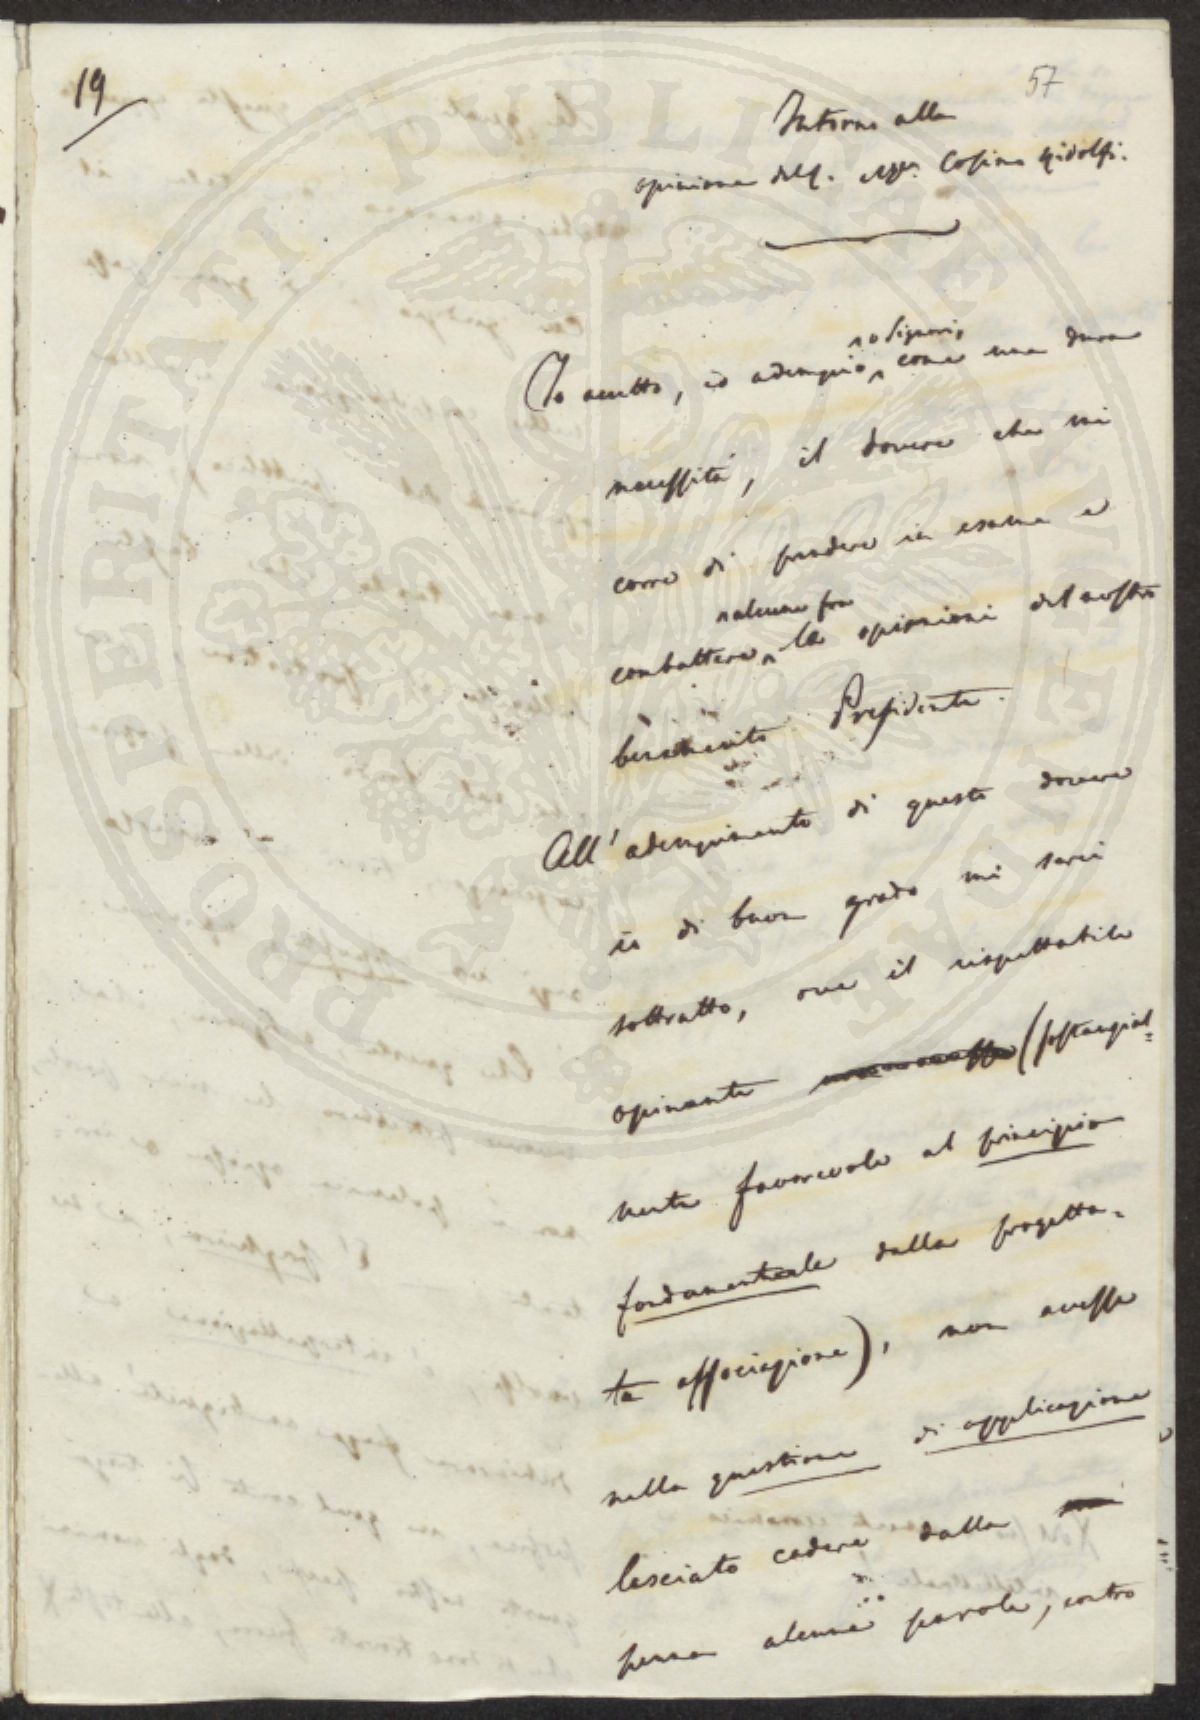 19
57
Intorno alla
opinione dell'. Cosimo Ridolfi.
o Signori,
Io accetto, io adempio, come una dura
necessità, il dovere che mi
corre di prendere in esame e
alcune fra
combattere le opinioni del nostro
benemerito Presidente.
All' adempimento di questo dovere
io di buon grado mi sarei
sottratto, ove il rispettabile
opinante (sostanzial=
mente favorevole al principio
fondamentale della progetta=
ta associazione), non avesse
nella questione di applicazione
lasciato cadere dalla
penna alcune parole, contro
PROSPERITATI PUBLICAE AUGENDAE